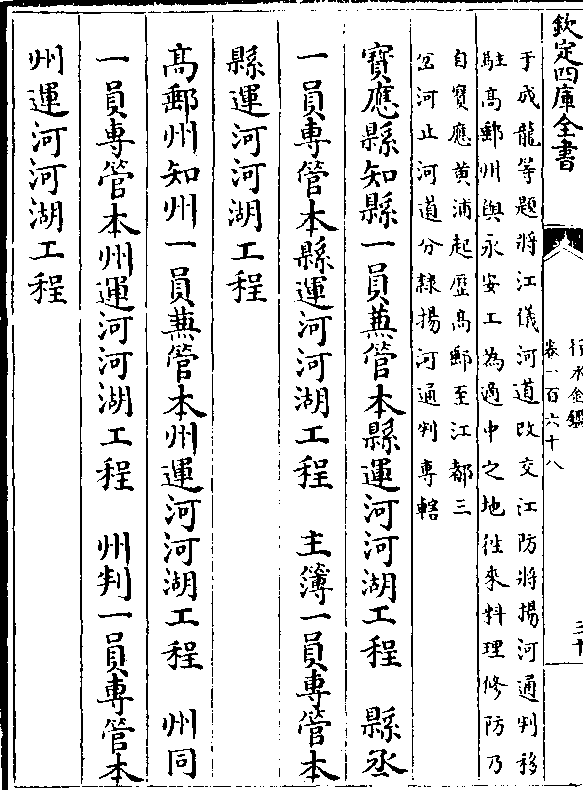 欽定四庫全書
行水金鑑
卷一百六十八
三十
于成龍等題將江儀河道改交江防將揚河通判移
駐高郵州與永安工為適中之地往來料理修防乃
自寶應黄浦起歷高郵至江都三
岔河止河道分隸揚河通判專轄
寶應縣知縣一員兼管本縣運河河湖工程　縣丞
一員專管本縣運河河湖工程　主簿一員專管本
縣運河河湖工程
高郵州知州一員兼管本州運河河湖工程　州同
一員專管本州運河河湖工程　州判一員專管本
州運河河湖工程